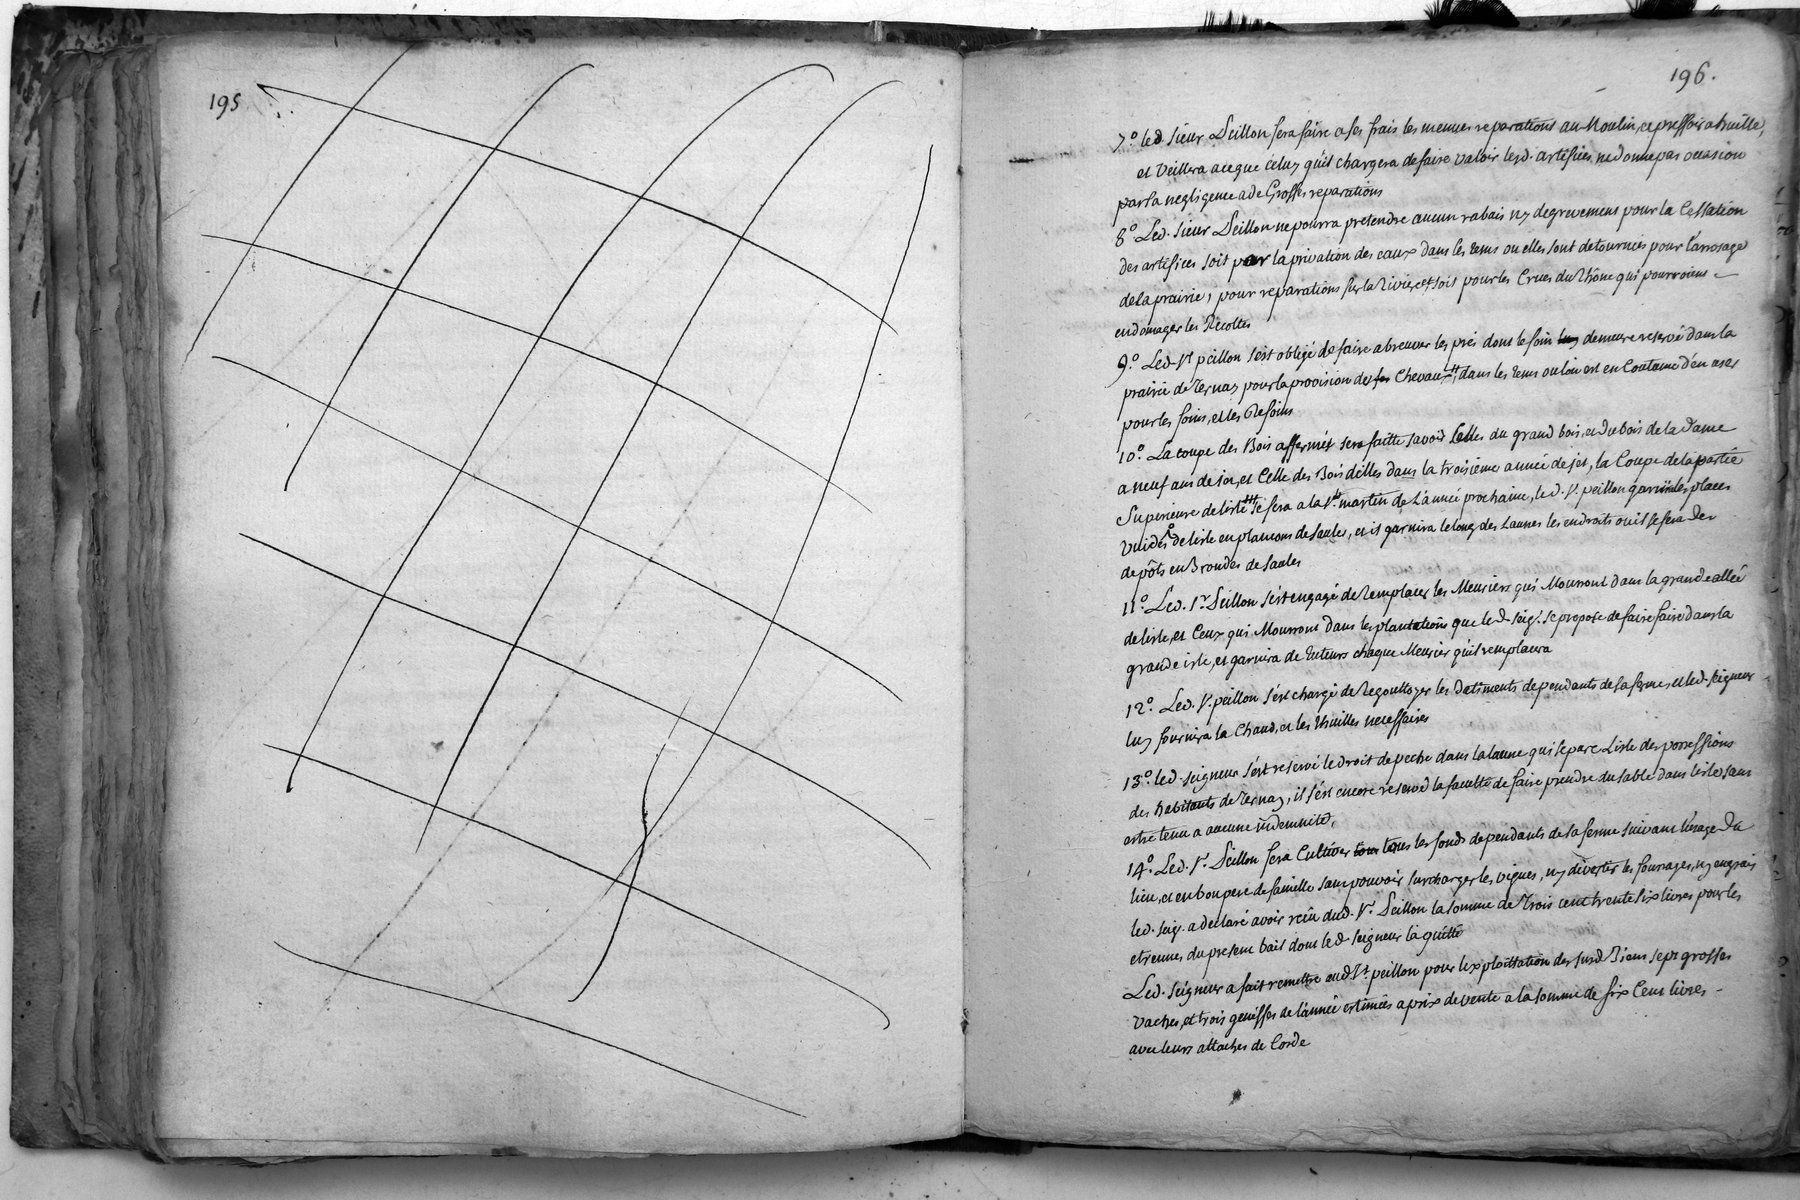 195
196.
7.° led. sieur Peillon fera faire a ses frais les menues reparations au Moulin, et pressoir a huille,
et Veillera a ce que celuy qu'il chargera de faire valoir lesd. artifices, ne donne pas occasion
par sa negligence a de Grosses reparations
8.° Led. sieur Peillon ne pourra pretendre aucun rabais ny degrevement pour la Cessation
des artifices soit par la privation des eaux dans les tems ou elles sont detournées pour l'arrosage
de la prairie, pour reparations sur la Riviere, et soit pour les Crues du Rhône qui pourroient
endomager les Recoltes
9.° Led. Sr. peillon s'est obligé de faire abreuver les prés dont le foin demeure reservé dans la
prairie de Ternay pour la provision de ses Chevaux, dans les tems ou l'on est en Coutume d'en user
pour les foins, et les Refoins
10.° La coupe des Bois affermés sera faitte savoir Celles du grand bois, et du bois de la Dame
a neuf ans de jet, et Celle des Bois d'illes dans la troisième année de jet, la Coupe de la partie
Superieure de l'isle se fera a la St. martin de L'année prochaine, led. Sr. peillon garnira les places
Vuides de l'isle en plancons de saules, et il garnira le long des Launes les endroits ou il se fera Des
depôts en Brondes de saules
11.° Led. Sr. Peillon s'est engagé de Remplacer les Meuriers qui Mourront dans la grande allée
de l'isle, et Ceux qui Mourront dans les plantations que led. seigr. se propose de faire faire dans la
grande isle, et garnira de tuteurs chaque Meurier qu'il remplacera
12.° Led. Sr. peillon s'est chargé de Regouttoyer les Batiments dependants de sa ferme, et led. seigneur
luy fournira la Chaud, et les thuilles necessaires
13.° led. seigneur s'est reservé le droit de peche dans la laune qui separe L'isle des possessions
des habitants de Ternay, il s'est encore reservé la faculté de faire prendre du sable dans l'isle, sans
estre tenu a aucune indemnité,
14.° Led. Sr. Peillon fera Cultiver tous les fonds dependants de sa ferme suivant l'usage Du
lieu, et en bon pere de famille sans pouvoir surcharger les vignes, ny divertir les fourrages, ny engrais
led. seigr. a declaré avoir reçû dud. Sr. Peillon la somme de Trois cent trente six livres pour les
etrennes du present bail dont led. seigneur l'a quitté
Led. seigneur a fait remettre aud. Sr. peillon pour l'exploittation des susd. Biens sept grosses
Vaches, et trois genisses de l'année estimées a prix de vente a la somme de six Cent livres
avec leurs attaches de Corde